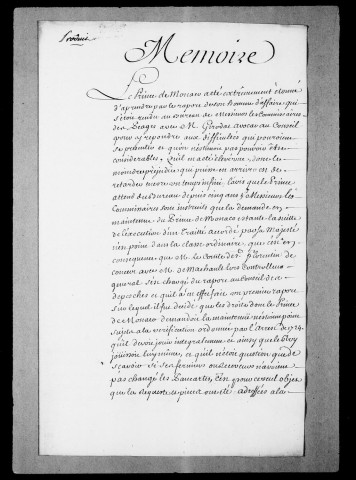 Produit
Memoire
Le Prince de Monaco a été extrêmement étonné
d'aprendre par le raport de son homme d'affaire qui
s'étoit rendu au bureau de Messieurs les Commissaires
des Peages avec M. Girodat avocat au Conseil
pour repondre aux difficultés qui pouroient
se presenter et qu'on n'estimoit pas pouvoir être
considerables, qu'il
moindre prejudice qui puisse en arriver est de
retarder encore un temps infini l'avis que le Prince
attend du Bureau depuis cinq ans. Messieurs les
Commissaires sont instruits que la demande en
maintenue du Prince de Monaco estante la suitte
de l'execution d'un Traitté accordé par sa Majesté
n'est point dans la classe ordinaire, que c'est en
consequence que M. le Comte de St florentin de
concert avec M. de Machault lors Controlleur
general s'est chargé du raport au Conseil des
depeches et qu'il a en effet fait un premier raport
sur lequel il fut decidé que les droits dont le Prince
de Monaco demandoit la maintenue n'étoient point
sujets a la verification ordonnée par l'arrest de 1724.
qu'il devoit jouir integralement et ainsy que le Roy
jouissoit luy même, et qu'il n'étoit question que de
scavoir si ses fermiers ou receveurs n'avoient
pas changé les Pancartes, C'est pour ce seul objet
que la Requeste et pieces ont été adressées a la